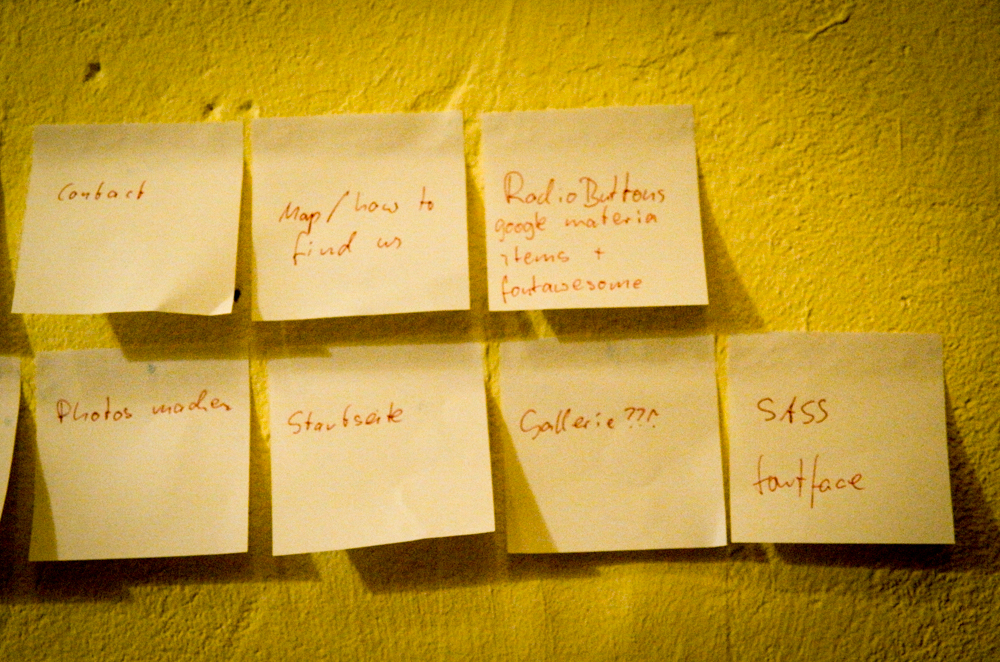 Contact
Map/how to
find us
RadioButtons
google materia
items +
fontawesome
Photos machen
Startseite
Gallerie???
SASS
fontface